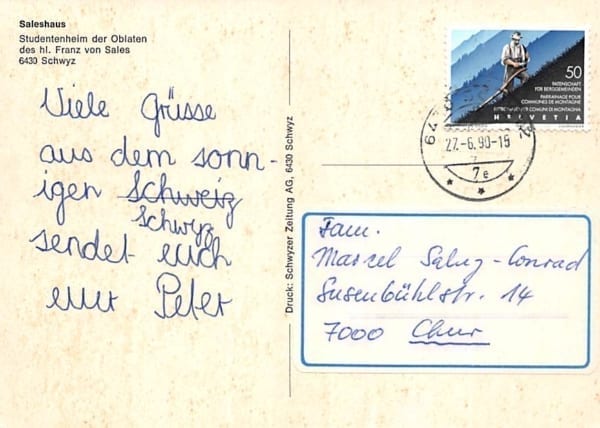 Saleshaus
Studentenheim der Oblaten
des hl. Franz von Sales
6430 Schwyz
Viele Grüsse
aus dem sonn-
igen Schweiz
Schwyz
sendet euch
eur Peter
Druck: Schwyzer Zeitung AG, 6430 Schwyz
50
PATENSCHAFT
FÜR BERGGEMEINDEN
PARRAINAGE POUR
COMMUNES DE MONTAGNE
COMUNI DI MONTAGNA
HELVETIA
27.-6.90-15
7e
Fam.
Marcel Saluz-Conrad
Susenbühlstr. 14
7000 Chur